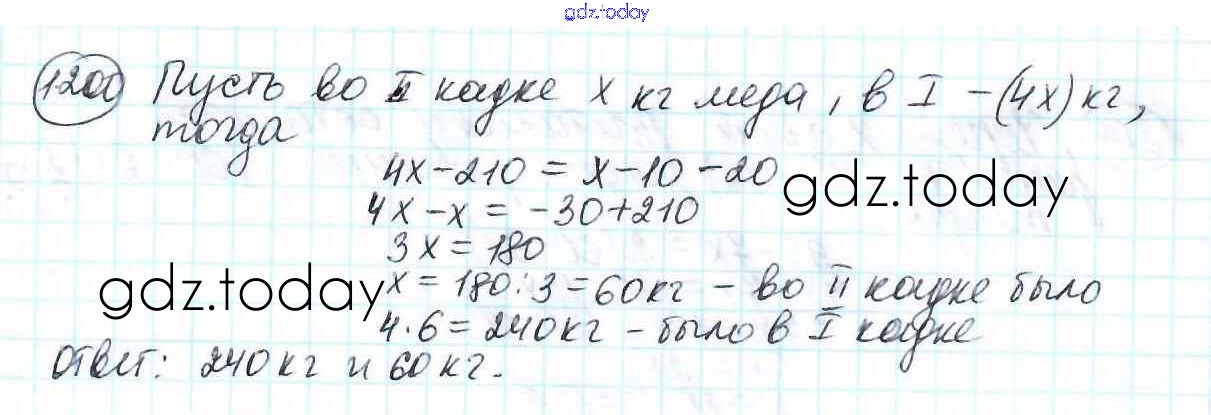 gdz.today
1200 Пусть во II кадке x кг меда, в I – (4x) кг,
тогда
4x-210 = x-10-20
gdz.today
4x-x = -30+210
3x = 180
gdz.today
x = 180:3 = 60кг – во II кадке было
4·6 = 240кг – было в I кадке
Ответ: 240кг и 60кг.